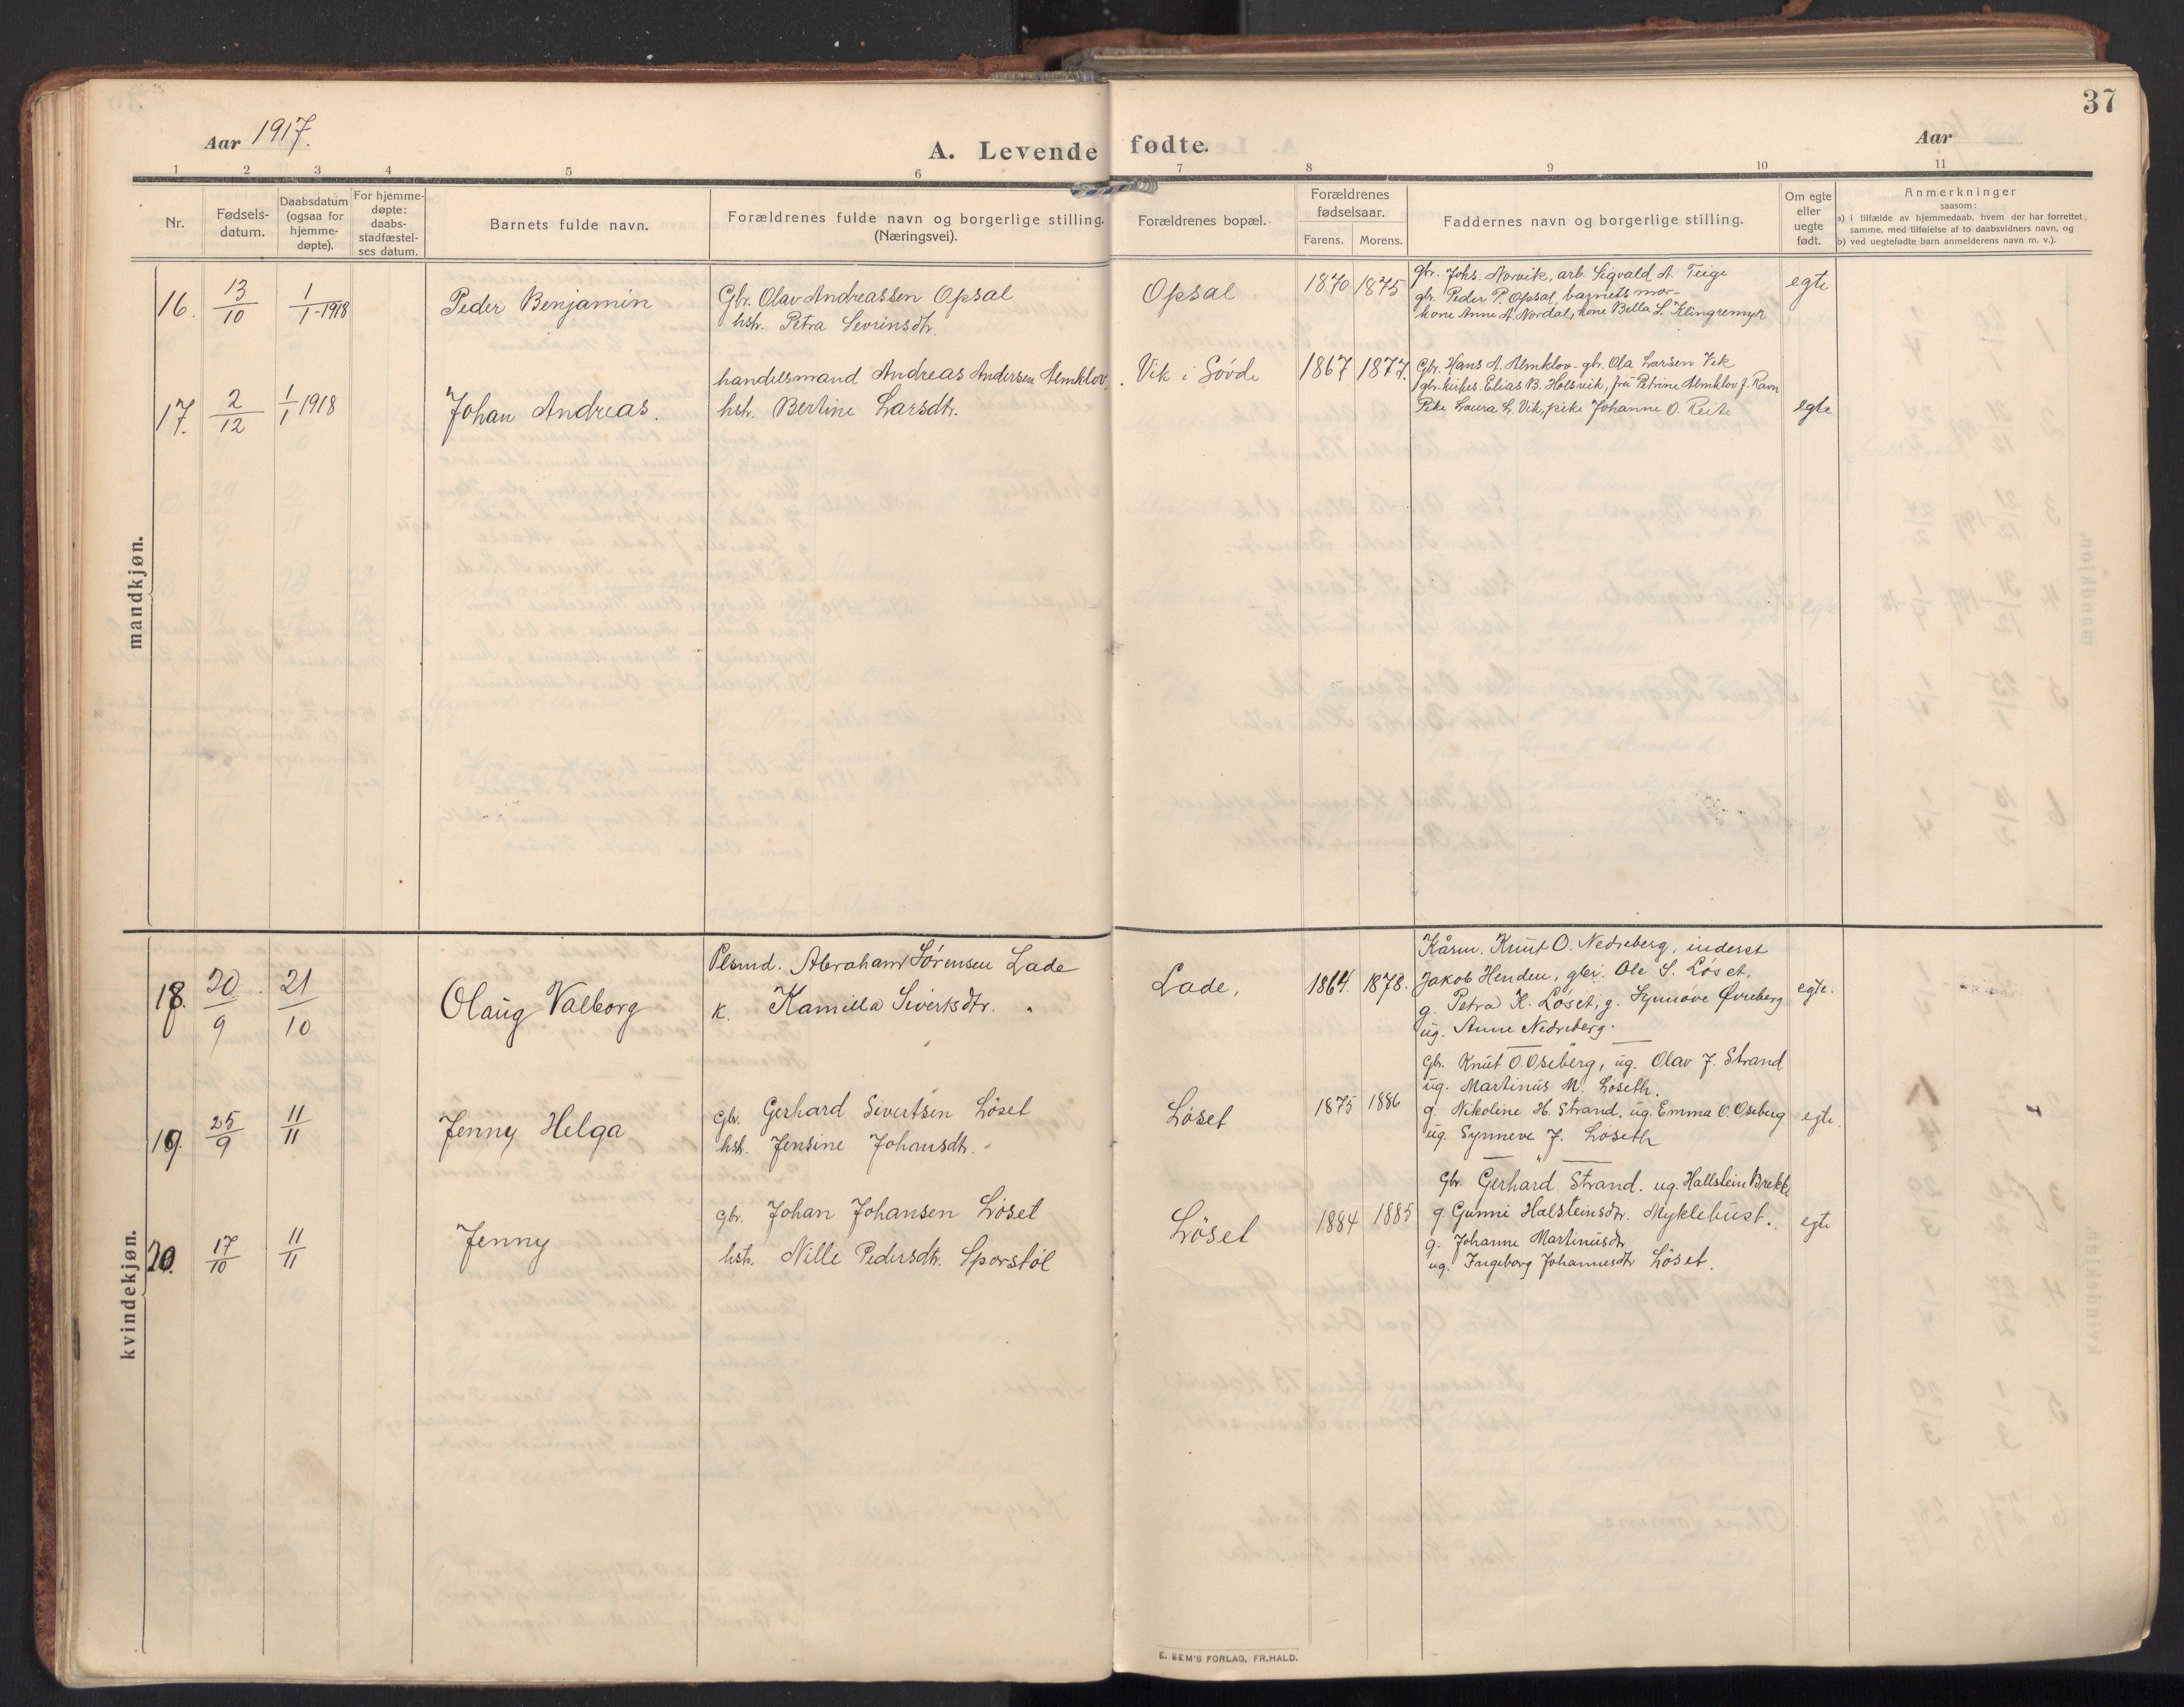 37
Aar 1917.
A. Levende fødte.
Aar
1 2 3 4 5 6 7 8 9 10 11
Nr.
Fødsels-
datum.
Daabsdatum
(ogsaa for
hjemme-
døpte).
For hjemme-
døpte:
daabs-
stadfæstel-
ses datum.
Barnets fulde navn.
Forældrenes fulde navn og borgerlige stilling.
(Næringsvei).
Forældrenes bopæl.
Forældrenes
fødselsaar.
Farens. Morens.
Faddernes navn og borgerlige stilling.
Om egte
eller
uegte
født.
Anmerkninger
saasom:
a) i tilfælde av hjemmedaab, hvem der har forrettet
samme, med tilføielse af to daabsvidners navn, og
b) ved uegtefødte barn anmelderens navn m. v.).
mandkjøn.
16. 13/10 1/1-1918 Peder Benjamin
Gbr. Olav Andreassen Opsal
hstr. Petra Sevrinsdtr.
Opsal 1870 1875
gbr. Johs. Norvik, arb. Sigvald A. Teige
gbr. Peder P. Opsal, barnets mor-
kone Anne A. Nordal, kone Bella L. Klingremyr
egte
17. 2/12 1/1 1918 Johan Andreas.
handelsmand Andreas Andersen Almklov
hstr. Bertine Larsdtr.
Vik i Søvde 1867 1877.
Gbr. Hans A. Almklov - gbr. Ola Larsen Vik
gbr. kirkes. Elias B. Holsvik, frü Petrine Almklov f. Ravn
Pike Laura L. Vik, pike Johanne O. Reite
egte
kvindekjøn.
18. 20/9 21/10 Olaug Valborg
Plsmd. Abraham Sørensen Lade
k. Kamilla Sivertsdtr. "
Lade, 1864. 1878.
Kårm. Knut O. Nedreberg, inderst
Jakob Henden, gbr. Ole S. Løset,
g. Petra K. Løset, g. Synnøve Øvreberg
ug. Anne Nedreberg.
egte.
19. 25/9 11/11 Jenny Helga
Gbr. Gerhard Sivertsen Løset
hstr. Jensine Johansdtr.
Løset 1875 1886
Gbr. Knut O. Oseberg, ug. Olav J. Strand
ug. Martinus M. Løseth.
g. Nikoline H. Strand. ug. Emma O. Oseberg
ug. Synneve J. Løseth
egte.
20. 17/10 11/11 Jenny
gbr. Johan Johansen Løset
hstr. Nille Pedersdtr. Sporstøl
Løset 1884 1885
Gbr. Gerhard Strand. ug. Hallstein Brekke
g. Gunni Halsteinsdtr. Myklebust.
g. Johanne Martinusdtr
ug. Ingeborg Johannesdtr Løset.
egte
E. SEM'S FORLAG, FR.HALD.